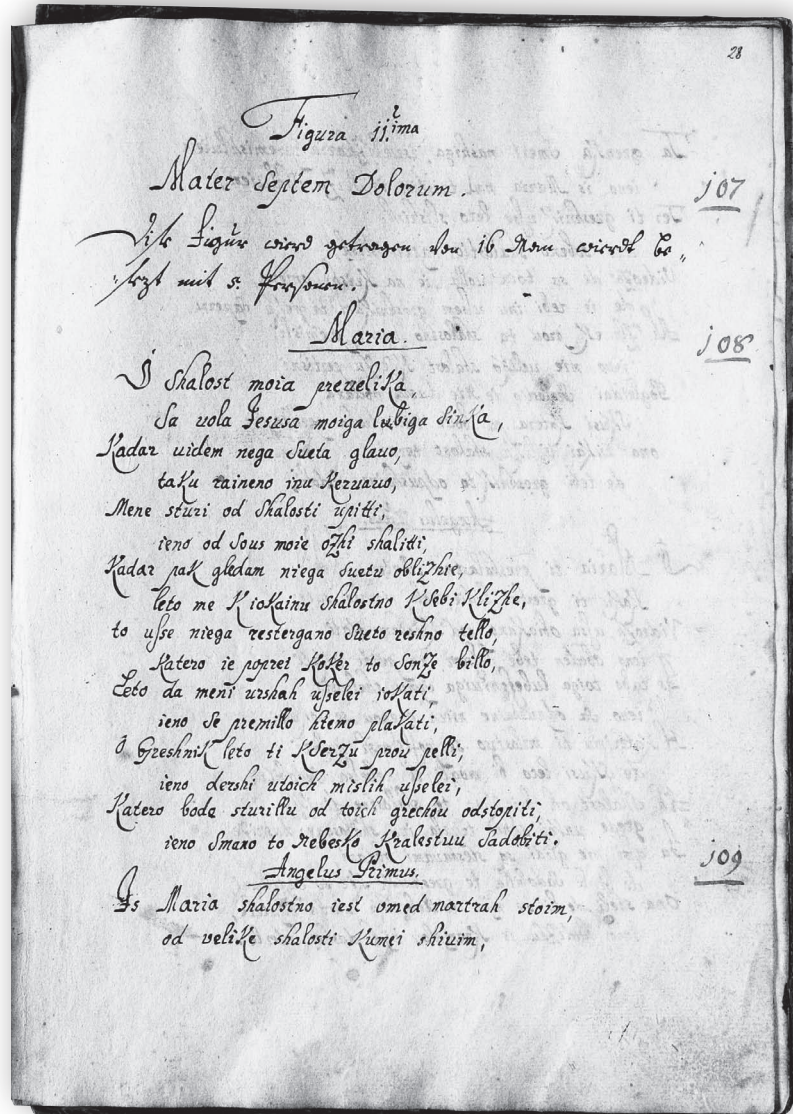 28
Figura 11ima
Mater Septem Dolorum.
107
Dise Figur wierd getragen von 16 Man wierdt be„
„sezt mit 5. Personen.
Maria.
108
O Shalost moia preuelika,
Sa uola Jesusa moiga lubiga Sinka,
Kadar uidem nega Sueta glauo,
taku raineno inu Keruauo,
Mene sturi od Shalosti upitti,
ieno od Sous moie ozhi shalitti,
Kadar pak gledam niega Suetu oblizhie,
leto me K iokainu Shalostno K Sebi Klizhe,
to usse niega restergano Sueto reshno tello,
Katero ie poprei Koker to Sonze billo,
Leto da meni urshah usselei iokati,
ieno Se premillo htemo plakati,
O Greshnik leto ti K Serzu prou pelli,
ieno dershi utoich mislih usselei,
Katero bode sturillu od toich grechou odstopiti,
ieno Smano to Nebesko Kralestuu Sadobiti.
Angelus Primus.
109
Is Maria shalostno iest umed martrah stoim,
od velike shalosti Kumei shiuim,